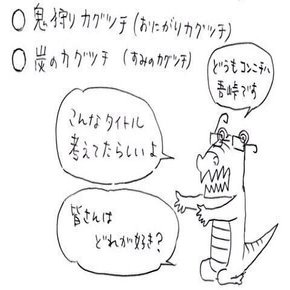 ○鬼狩りカグツチ(おにがりカグツチ)
○炭のカグツチ (すみのカグツチ)
どうもコンニチハ
吾峠です
こんなタイトル
考えてたらしいよ
皆さんは
どれが好き?